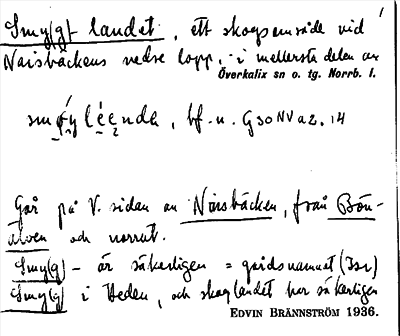 Smy(g)-landet, ett skogsområde vid
Naisbäckens nedre lopp, i mellersta delen av
Överkalix sn o. tg. Norrb. l.
bf. n. G 30 NV a2. 14
Går på V. sidan av Naisbäcken, från Bön-
älven och norrut.
Smy(g) - är säkerligen = gårdsnamnet (Isr)
Smy(g) i Heden, och skoglandet har säkerligen
EDVIN BRÄNNSTRÖM 1936.